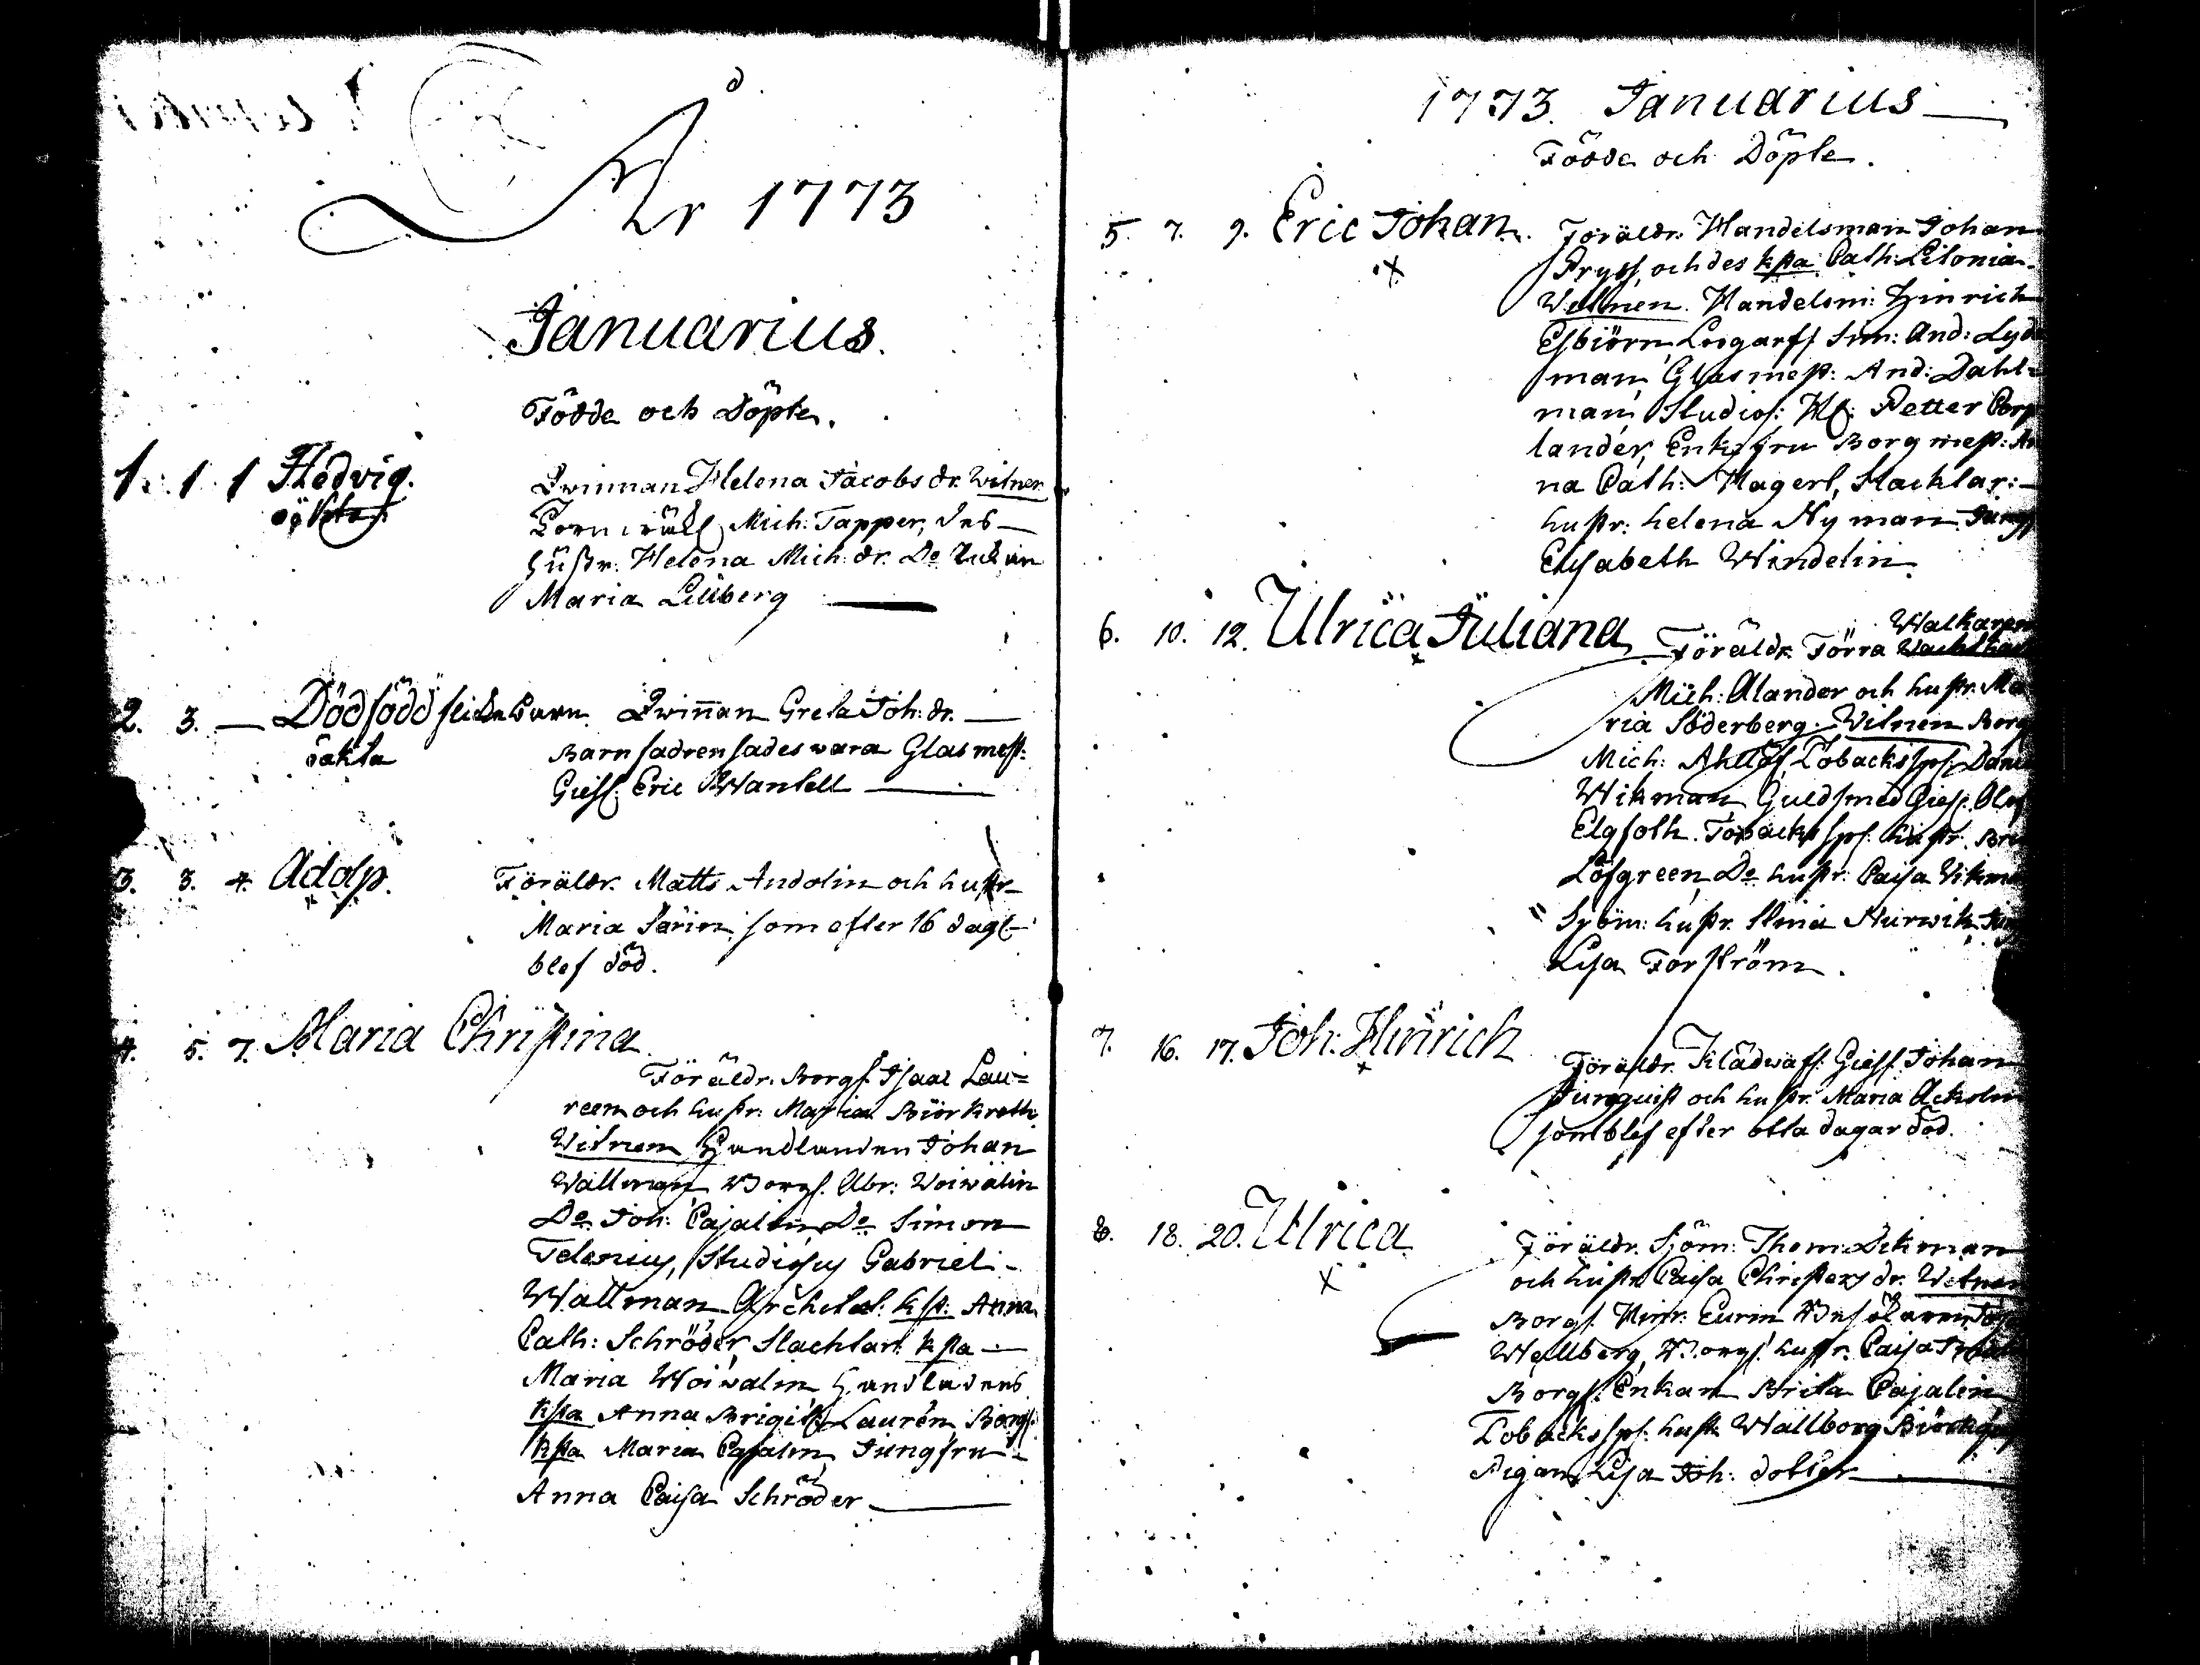 Åhr 1773
Januarius.
Födde och Döpte.
1. 1. 1 Hedvig.
oäkta
Qwinnan Helena Jacobs dr. Witnen
Mich: Tapper, des
Hustr. Helena Mich: dr. Do
Maria Lilliberg
2. 3. — Dödfödd flicke barn. Qwinnan Greta Joh: dr. —
oäkta
Barnfadren sades wara Glasmest:
Giesl. Eric Wantell —
3. 3. 4. Adolp.
Föräldr. Matts Andolin och hustr
Maria Serin, som efter 16 dagr
blef död.
4. 5. 7. Maria Christina
Föräldr. Borgs. Isaac Lau=
reen och hustr: Maria Biörkroth
Witnen Handlanden Johan
Wallman Borgs. Abr: Woiwalin
Do Joh: Cajalen Do Simon
Telenius, Studiosus Gabriel
Wallman ksta: Anna
Cath: Schröder, Slachtar: ksta —
Maria Woiwalin Handladens
ksta Anna Brigitt Laurén, Borgs:
ksta Maria Cajalen Jungfru
Anna Caisa Schröder —
1773. Januarius —
Födde och Döpte.
5. 7. 9. Eric Johan.
x
Föräldr. Handelsman Johan
Pryss, och des ksta Cath: Litonia
Witnen. Handelsm: Hinrich
Esbiörn, And: Lyd
man Glasmest: And: Dahl=
man, Studios: Petter
lander, Enkefru Borgmest: An
na Cath: Hagert, Slacktar: —
hustr: helena Nyman Jungf
Elisabeth Windelin.
6. 10. 12. Ulrica Juliana
x
Walkaren
Föräldr. Förra
Mich: Alander och hustr. Ma
ria Söderberg. Witnen Borg
Mich: Tobacksspf: Dani
Wikman Guldsmed Giesl. Olof
Elgfoth. Tobacksspf. hustr. Bri
Löfgreen, Do hustr: Caisa Wikma
Sjöm: hustr. Stina Nurwik
Lisa Forström.
7. 16. 17. Joh: Hinrich
x
Föräldr. Klädwäf: Giesl. Johan
Jungquist och hustr. Maria
som blef efter otta dagar död.
8. 18. 20. Ulrica
x
Föräldr. Sjöm: Thom: Dikman
och hustr Caisa Christers dr. Witnen
Borgs. Hinr: Eurin
Wellberg, Borgs: hustr. Caisa
Borgs. Enkan Brita Cajalen
Tobacksspf. hustr Wallborg
Pigan Lisa Joh: dotter —